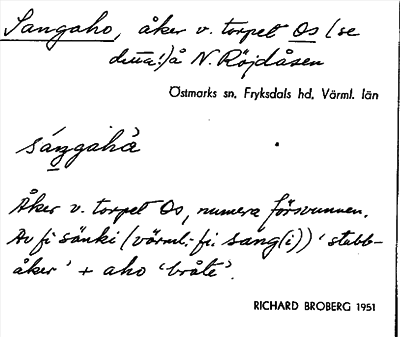 Sangaho, åker v. torpet Os (se
detta!) å N. Röjdåsen
Östmarks sn, Fryksdals hd, Värml. län
sáŋgahà
Åker v. torpet Os, numera försvunnen.
Av fi sänki (värml.-fi. sang(i)) 'stubb-
åker' + aho 'bråte'.
RICHARD BROBERG 1951